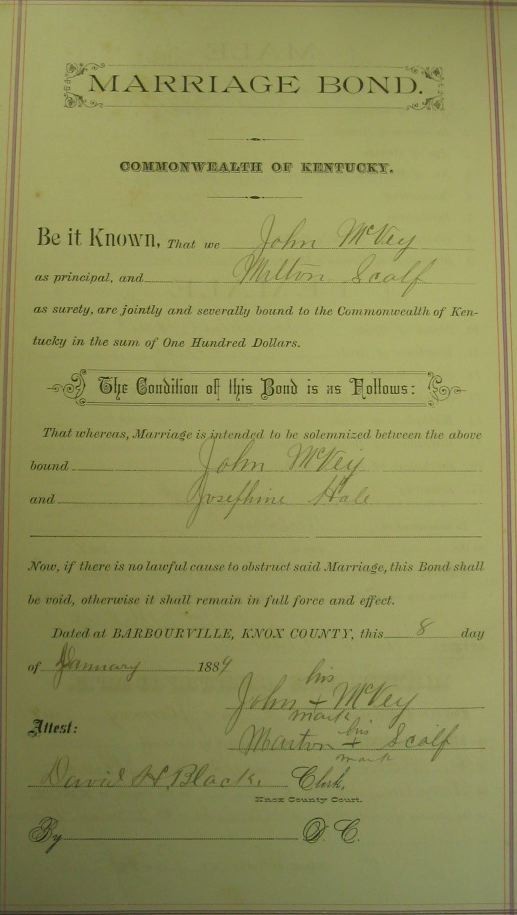 MARRIAGE BOND.
COMMONWEALTH OF KENTUCKY.
Be it Known, That we John McVey
as principal, and Milton Scalf
as surety, are jointly and severally bound to the Commonwealth of Ken-
tucky in the sum of One Hundred Dollars.
The Condition of this Bond is as Follows:
That whereas, Marriage is intended to be solemnized between the above
bound John McVey
and Josephine Hale
Now, if there is no lawful cause to obstruct said Marriage, this Bond shall
be void, otherwise it shall remain in full force and effect.
Dated at BARBOURVILLE, KNOX COUNTY, this 8 day
of January 1889
his
John + McVey
mark
Attest:
his
Marton + Scalf
mark
David H Black, Clerk,
Knox County Court.
By D. C.